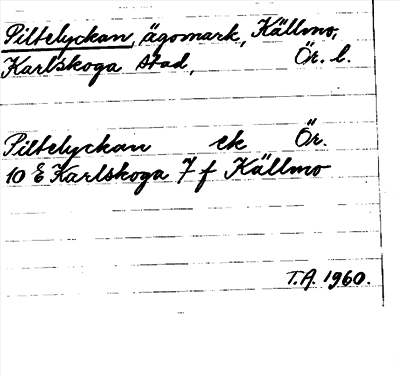 Piltelyckan, ägomark, Källmo,
Karlskoga stad, Ör. l.
Piltelyckan ek Ör.
10 E Karlskoga 7 f Källmo
T.A. 1960.